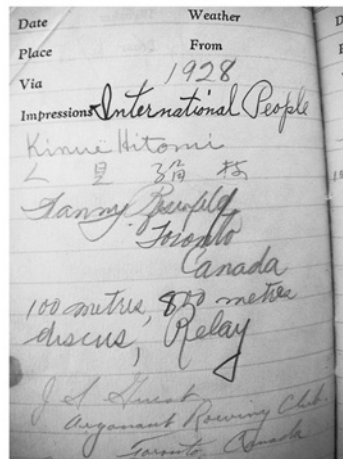 Date Weather
Place From
Via 1928
Impressions International People
Kinuë Hitomi
人 見 絹 枝
Fanny Rosenfeld
Toronto
Canada
100 metres, 800 metres
discus, Relay
Argonaut Rowing Club.
Toronto, Canada